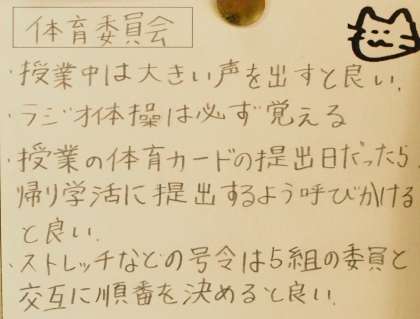 体育委員会
・授業中は大きい声を出すと良い.
・ラジオ体操は必ず覚える
・授業の体育カードの提出日だったら
帰り学活に提出するよう呼びかける
と良い.
・ストレッチなどの号令は5組の委員と
交互に順番を決めると良い.